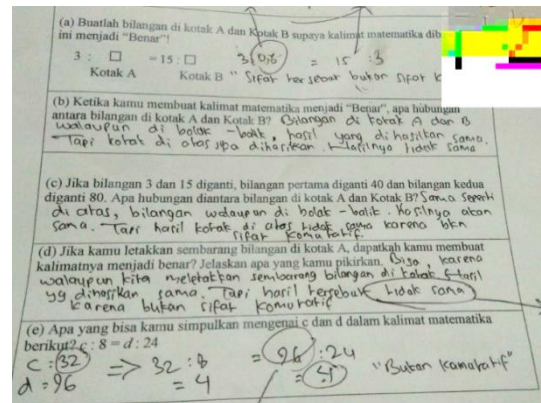 (a) Buatlah bilangan di kotak A dan Kotak B supaya kalimat matematika dib
ini menjadi "Benar"!
3 : □ = 15 : □ 3 : 0,6 = 15 : 3
Kotak A Kotak B " Sifat tersebut bukan sifat k
(b) Ketika kamu membuat kalimat matematika menjadi "Benar", apa hubungan
antara bilangan di kotak A dan Kotak B? Bilangan di kotak A dan B
walaupun di bolak - balik, hasil yang di hasilkan sama.
Tapi kotak di atas dihasilkan. Hasilnya tidak sama
(c) Jika bilangan 3 dan 15 diganti, bilangan pertama diganti 40 dan bilangan kedua
diganti 80. Apa hubungan diantara bilangan di kotak A dan Kotak B? Sama seperti
di atas, bilangan walaupun di bolak - balik. Hasilnya akan
sama. Tapi hasil kotak di atas tidak sama karena bkn
sifat komutatif.
(d) Jika kamu letakkan sembarang bilangan di kotak A, dapatkah kamu membuat
kalimatnya menjadi benar? Jelaskan apa yang kamu pikirkan. Bisa, karena
walaupun kita meletakkan sembarang bilangan di kotak Hasil
yg dihasilkan sama. Tapi hasil tersebut tidak sama
karena bukan sifat komutatif
(e) Apa yang bisa kamu simpulkan mengenai c dan d dalam kalimat matematika
berikut? c : 8 = d : 24
c = 32 => 32 : 8 = 96 : 24
d = 96 = 4 = "Bukan kamutatif"